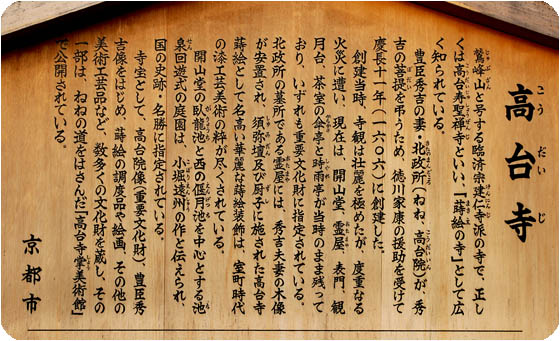 高台寺
こうだいじ
鷲峰山と号する臨済宗建仁寺派の寺で、正し
くは高台寿聖禅寺といい、「蒔絵の寺」として広
く知られている。
豊臣秀吉の妻・北政所(ねね、高台院)が、秀
吉の菩提を弔うため、徳川家康の援助を受けて
慶長十一年(一六〇六)に創建した。
創建当時、寺観は壮麗を極めたが、度重なる
火災に遭い、現在は、開山堂、霊屋、表門、観
月台、茶室の傘亭と時雨亭が当時のまま残って
おり、いずれも重要文化財に指定されている。
北政所の墓所である霊屋には、秀吉夫妻の木像
が安置され、須弥壇及び厨子に施された高台寺
蒔絵として名高い華麗な蒔絵装飾は、室町時代
の漆工芸美術の粋が尽くされている。
開山堂の臥龍池と西の偃月池を中心とする池
泉回遊式の庭園は、小堀遠州の作と伝えられ、
国の史跡・名勝に指定されている。
寺宝として、高台院像(重要文化財)、豊臣秀
吉像をはじめ、蒔絵の調度品や絵画、その他の
美術工芸品など、数多くの文化財を蔵し、その
一部は、ねねの道をはさんだ「高台寺掌美術館」
で公開されている。
京都市